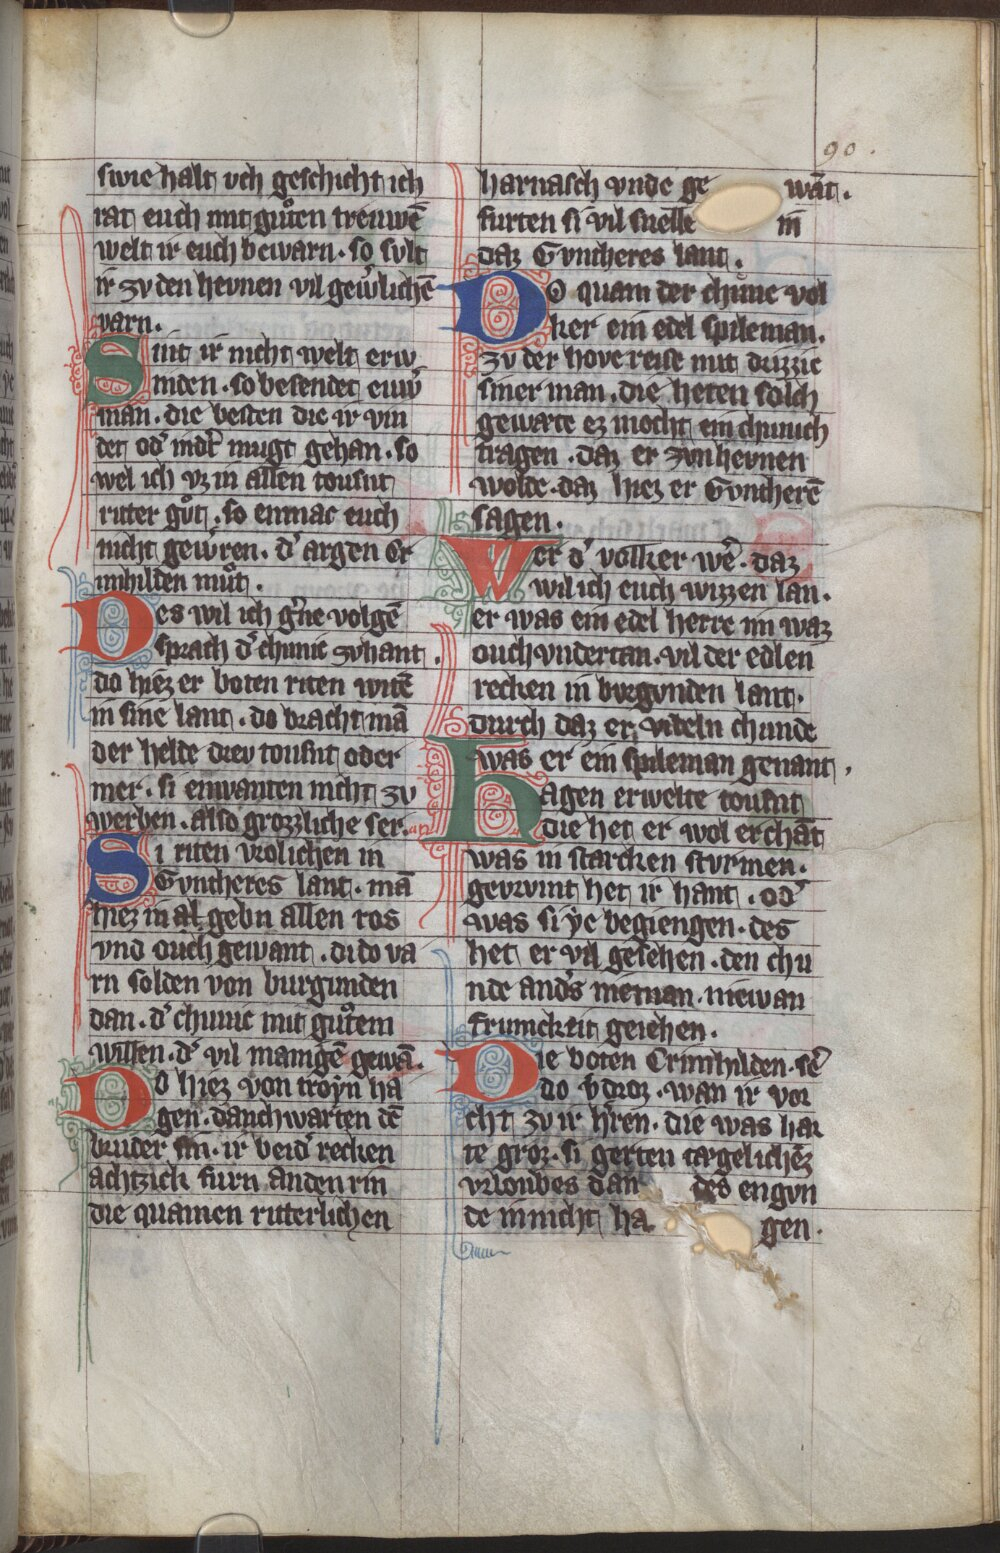 90.
swie halt vch geschicht ich
rat euch mit guͦten treuwē
welt ir euch bewarn. so sult
ir zv den hevnen vil gew̉lichē
varn.
Sint ir nicht welt erw
inden. so besendet euw̉
man. die besten die ir vin
det od̉ ind̉t mugt gehan. so
wel ich vz in allen tousnt
ritter guͦt. so enmac euch
nicht gew̉ren. d̉ argen Cr
imhilden muͦt.
Des wil ich g̉ne volgē
sprach d̉ chunic zvhant.
do hiez er boten riten witē
in sine lant. do bracht mā
der helde drev tousnt oder
mer. si enwanten nicht zv
werben. also grozzliche ser.
Si riten vrolichen in
Gvntheres lant. mā
hiez in al gebn allen ros
vnd ouch gewant. di do va
rn solden von burgunden
dan. d̉ chunic mit guͦtem
willen. d̉ vil manigē gewā.
Do hiez von troyn ha
gen. danchwarten dē
bruder sin. ir beid̉ recken
achtzich furn anden rin
die quamen ritterlichen
harnasch vnde ge wāt.
furten si vil snelle in
daz Gvntheres lant.
Do quam der chune vol
ker ein edel spileman.
zv der hove reise mit drizzic
siner man. die heten solch
gewarte ez mocht ein chunich
tragen. daz er zvn hevnen
wolde. daz hiez er Gvntherē
sagen.
Wer d̉ volker we̓. daz
wil ich euch wizzen lan.
er was ein edel herre im waz
ouch vndertan. vil der edlen
recken in bvrgvnden lant.
durch daz er videln chunde
was er ein spileman genant.
Hagen erwelte tousnt
die het er wol erchāt
was in starcken stvrmen.
gevrvmt het ir hant. od̉
was si ẏe begiengen. des
het er vil gesehen. den chu
nde and̉s nieman. niewan
frumckeit geiehen.
Die boten Crimhilden. se̓
do v̉droz. wan ir vor
cht zv ir h̉ren. die was har
te groz. si gerten tegelichez
vrloubes dan des engvn
de in nicht ha gen.